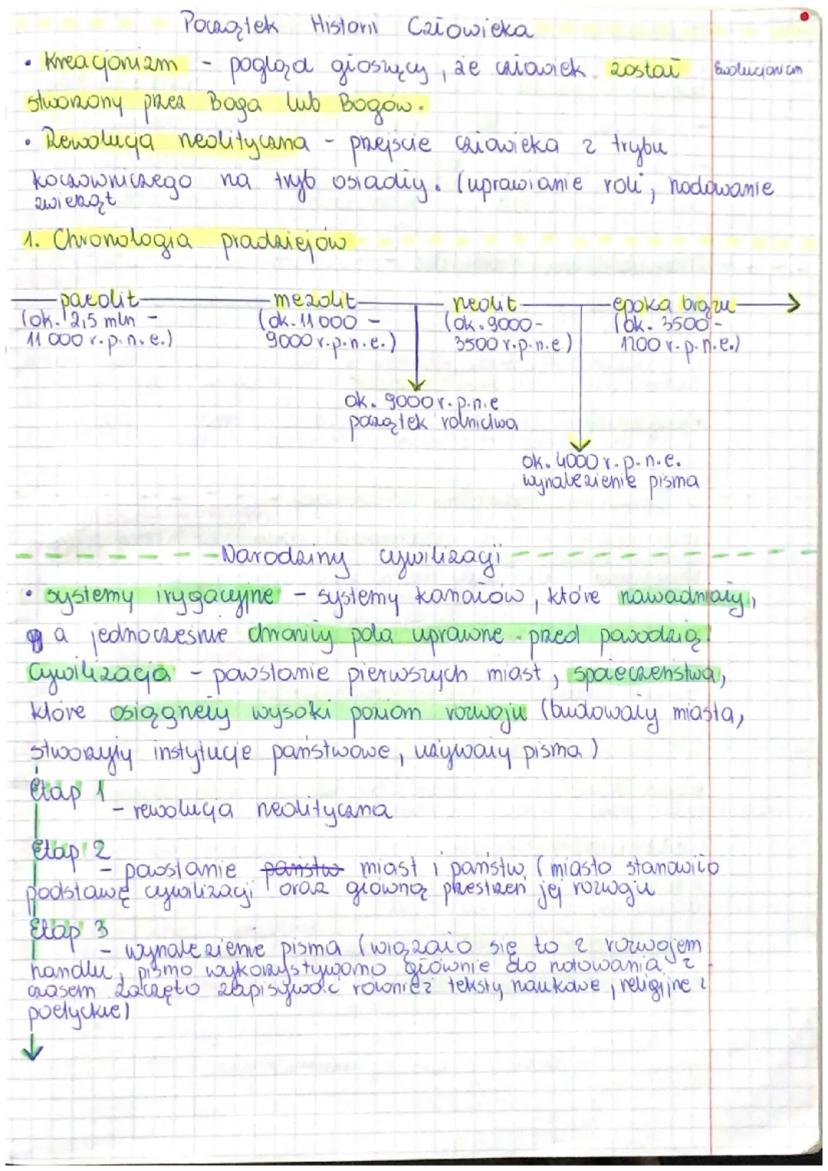 Początek Historii Człowieka
• Kreacjonizm - pogląd głoszący, że człowiek został ewolucjonizm
stworzony przez Boga lub Bogów.
• Rewolucja neolityczna - przejście człowieka z trybu
koczowniczego na tryb osiadły. (uprawianie roli, hodowanie
zwierząt
1. Chronologia pradziejów
paleolit mezolit neolit epoka brązu
(ok. 2,5 mln - (ok. 11 000 - (ok. 9000- (ok. 3500-
11 000 r. p. n. e.) 9000 r. p. n. e.) 3500 r. p. n. e) 1200 r. p. n. e.)
ok. 9000 r. p. n. e
początek rolnictwa
ok. 4000 r. p. n. e.
wynalezienie pisma
Narodziny cywilizacji
• systemy irygacyjne - systemy kanałów, które nawadniały,
a jednocześnie chroniły pola uprawne przed powodzią!
Cywilizacja - powstanie pierwszych miast, społeczeństwa,
które osiągnęły wysoki poziom rozwoju (budowały miasta,
stworzyły instytucje państwowe, używały pisma)
Etap 1
- rewolucja neolityczna
Etap 2
- powstanie państw miast i państw (miasto stanowiło
podstawę cywilizacji oraz główną przestrzeń jej rozwoju
Etap 3
- wynalezienie pisma (wiązało się to z rozwojem
handlu, pismo wykorzystywano głównie do notowania z
czasem zaczęto zapisywać również teksty naukowe, religijne i
poetyckie)